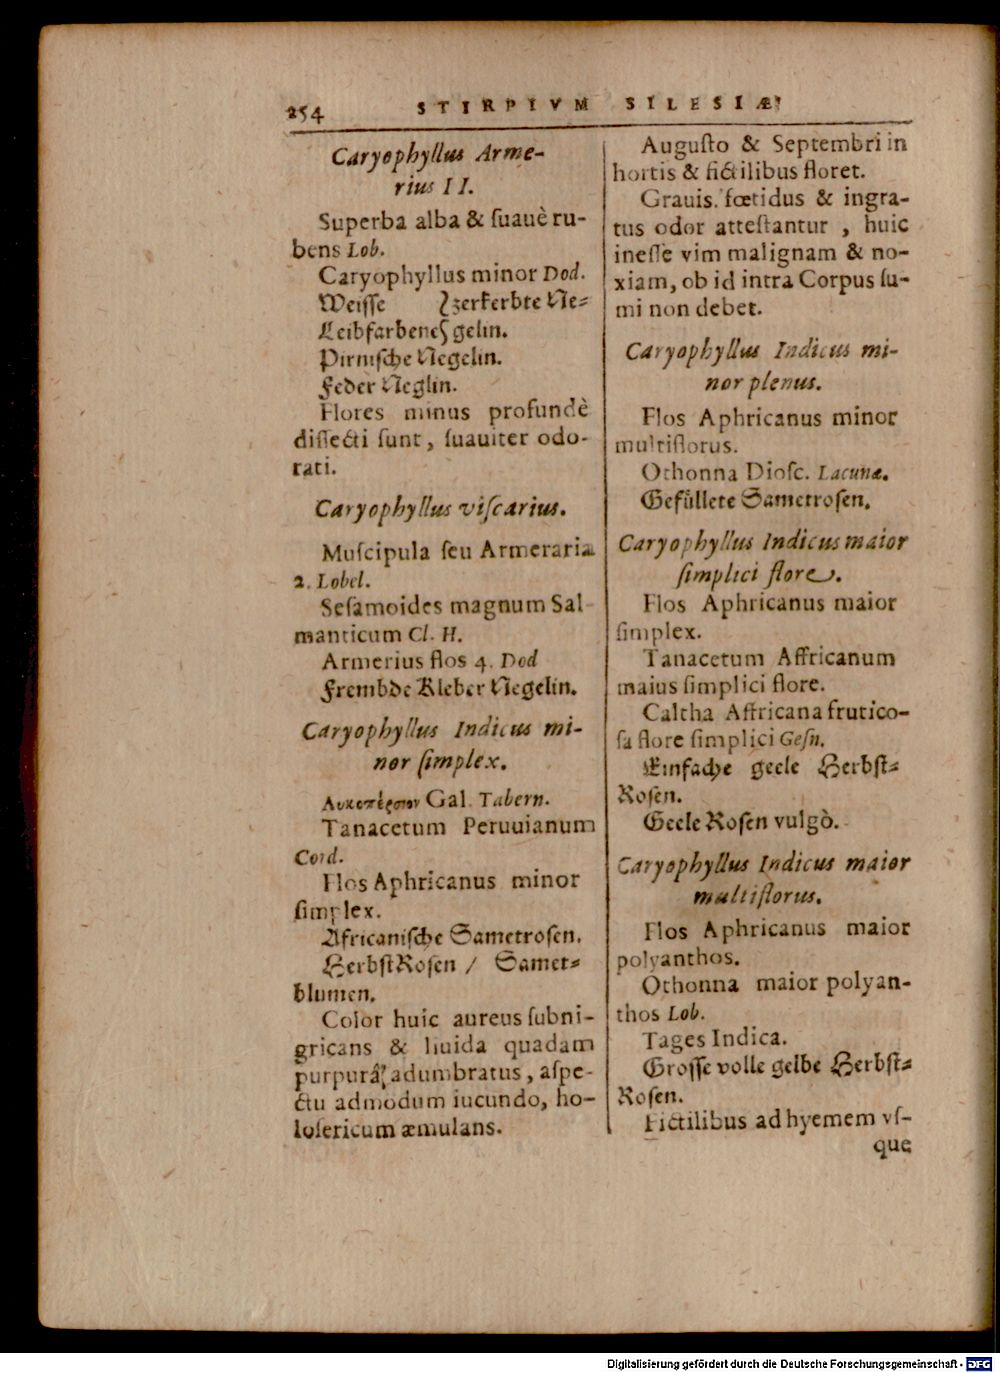 254 STIRPIVM SILESIÆ
Caryophyllus Arme-
rius II.
Superba alba & ſuauè ru-
bens Lob.
Caryophyllus minor Dod.
Weiſſe } zerkerbte Ne⸗
Leibfarbene } gelin.
Pirniſche Negelin.
Feder Neglin.
Flores minus profundè
diſſecti ſunt, ſuauiter odo-
rati.
Caryophyllus viſcarius.
Muſcipula ſeu Armeraria
2. Lobel.
Seſamoides magnum Sal
manticum Cl. H.
Armerius flos 4. Dod
Frembde Kleber Negelin.
Caryophyllus Indicus mi-
nor ſimplex.
Λυκοπέρσιον Gal. Tabern.
Tanacetum Peruuianum
Cord.
Flos Aphricanus minor
ſimplex.
Africaniſche Sametroſen.
HerbſtRoſen / Samet⸗
blumen.
Color huic aureus ſubni-
gricans & liuida quadam
purpurâ adumbratus, aſpe-
ctu admodum iucundo, ho-
loſericum æmulans.
Auguſto & Septembri in
hortis & fictilibus floret.
Grauis. fœtidus & ingra-
tus odor atteſtantur, huic
ineſſe vim malignam & no-
xiam, ob id intra Corpus ſu-
mi non debet.
Caryophyllus Indicus mi-
nor plenus.
Flos Aphricanus minor
multiflorus.
Othonna Dioſc. Lacunæ.
Gefüllete Sametroſen.
Caryophyllus Indicus maior
ſimplici flore.
Flos Aphricanus maior
ſimplex.
Tanacetum Affricanum
maius ſimplici flore.
Caltha Affricana frutico-
ſa flore ſimplici Geſn.
Einfache geele Herbſt⸗
Roſen.
Geele Roſen vulgò.
Caryophyllus Indicus maior
multiflorus.
Flos Aphricanus maior
polyanthos.
Othonna maior polyan-
thos Lob.
Tages Indica.
Groſſe volle gelbe Herbſt⸗
Roſen.
Fictilibus ad hyemem vſ-
que
Digitalisierung gefördert durch die Deutsche Forschungsgemeinschaft - DFG